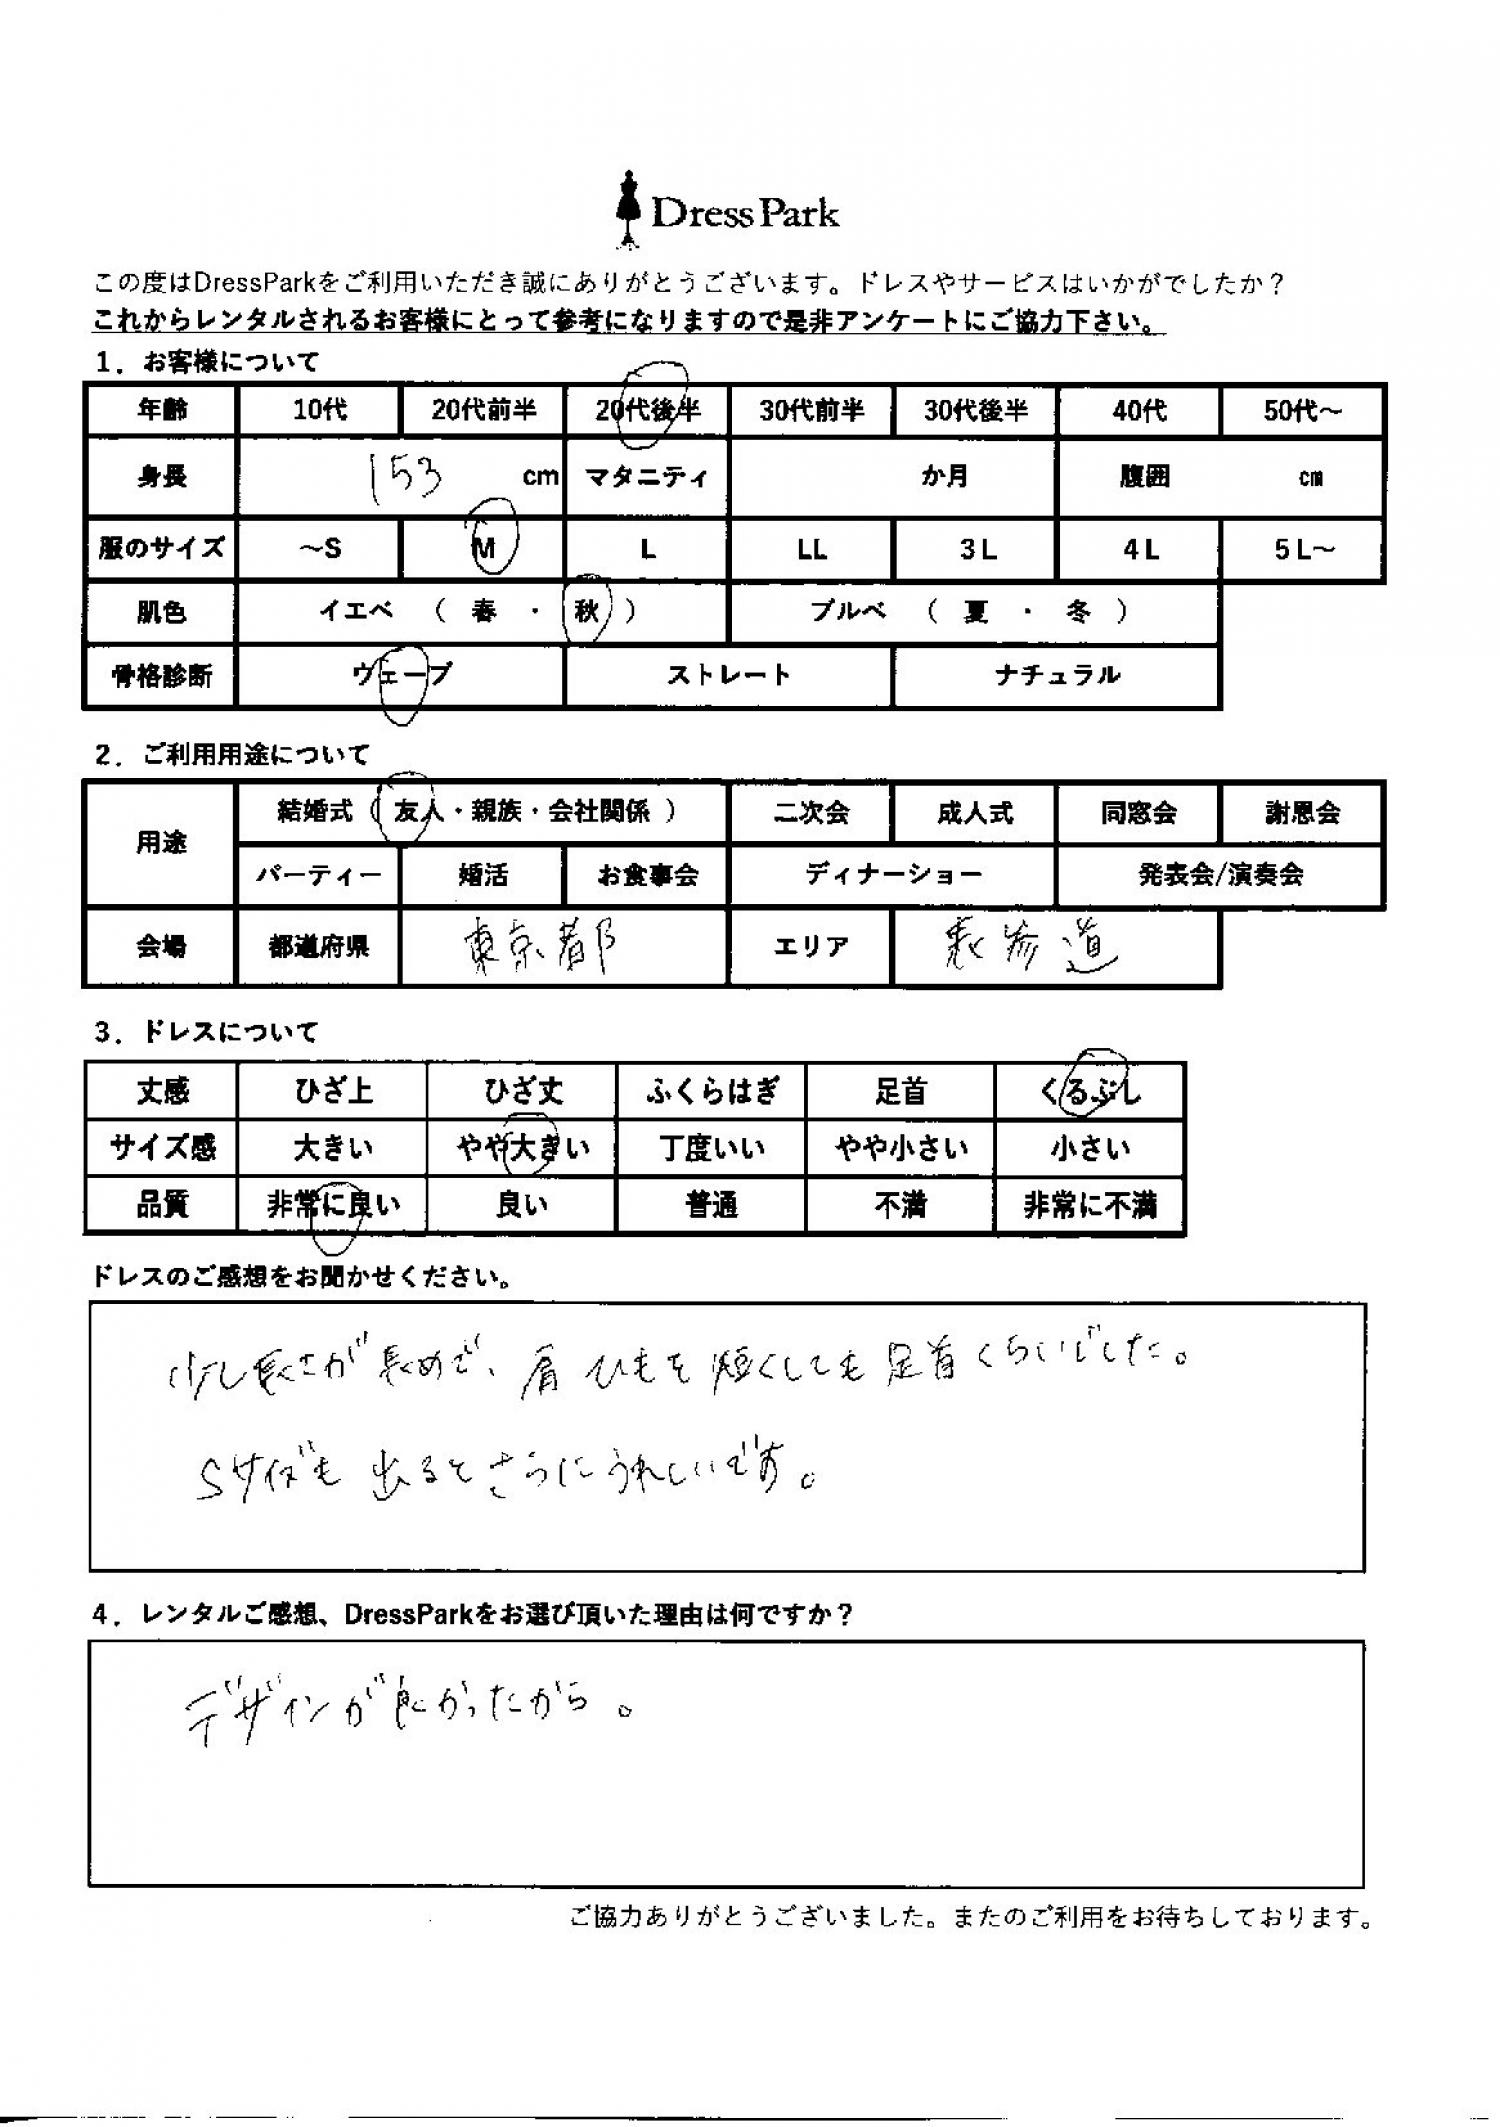 DressPark
この度はDressParkをご利用いただき誠にありがとうございます。ドレスやサービスはいかがでしたか？
これからレンタルされるお客様にとって参考になりますので是非アンケートにご協力下さい。
1．お客様について
年齢 10代 20代前半 20代後半 30代前半 30代後半 40代 50代～
身長 153 cm マタニティ か月 腹囲 cm
服のサイズ ～S M L LL 3L 4L 5L～
肌色 イエベ （ 春 ・ 秋 ） ブルベ （ 夏 ・ 冬 ）
骨格診断 ウェーブ ストレート ナチュラル
2．ご利用用途について
用途 結婚式（ 友人・親族・会社関係 ） 二次会 成人式 同窓会 謝恩会
パーティー 婚活 お食事会 ディナーショー 発表会/演奏会
会場 都道府県 東京都 エリア 表参道
3．ドレスについて
丈感 ひざ上 ひざ丈 ふくらはぎ 足首 くるぶし
サイズ感 大きい やや大きい 丁度いい やや小さい 小さい
品質 非常に良い 良い 普通 不満 非常に不満
ドレスのご感想をお聞かせください。
少し長さが長めで、肩ひもを短くしても足首くらいでした。
Sサイズも出るとさらにうれしいです。
4．レンタルご感想、DressParkをお選び頂いた理由は何ですか？
デザインが良かったから。
ご協力ありがとうございました。またのご利用をお待ちしております。